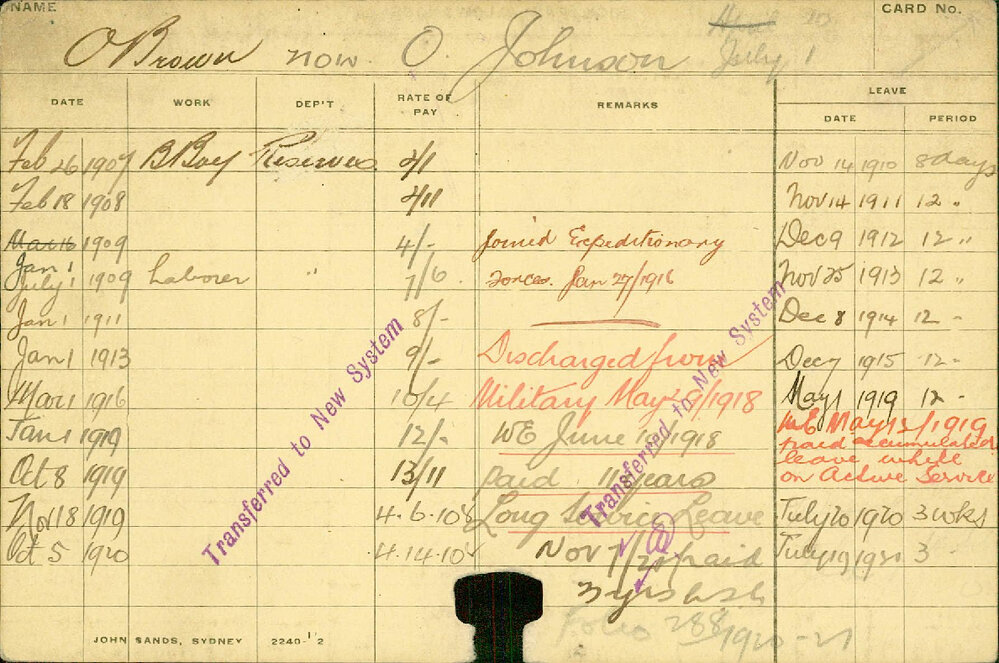 NAME
CARD No.
O Brown now O. Johnson
July 1
DATE WORK DEP'T RATE OF PAY REMARKS LEAVE
DATE PERIOD
Feb 26 1907 B Boy Reserves 2/1 Nov 14 1910 8 days
Feb 18 1908 2/11 Nov 14 1911 12 "
Mar 16 1909 4/- Joined Expeditionary Dec 9 1912 12 "
Jan 1
July 1 1909 Laborer " 7/6 Forces. Jan 27/1916 Nov 25 1913 12 "
Jan 1 1911 8/- Dec 8 1914 12 "
Jan 1 1913 9/- Discharged from Dec 7 1915 12 "
Mar 1 1916 10/4 Military May 28/1918 May 1 1919 12 "
Jan 1 1919 12/- WE June 19/1918 WE May 12/1919
paid accumulated
leave while
Oct 8 1919 13/11 paid 11 years on Active Service
Nov 18 1919 4.6.10½ Long Service Leave July 20 1920 3 wks
Oct 5 1920 4.14.10 Nov 7/21 paid July 19 1921 3 "
3 yrs
Folio 288 1920-21
Transferred to New System
Transferred to New System
JOHN SANDS, SYDNEY 2240-12